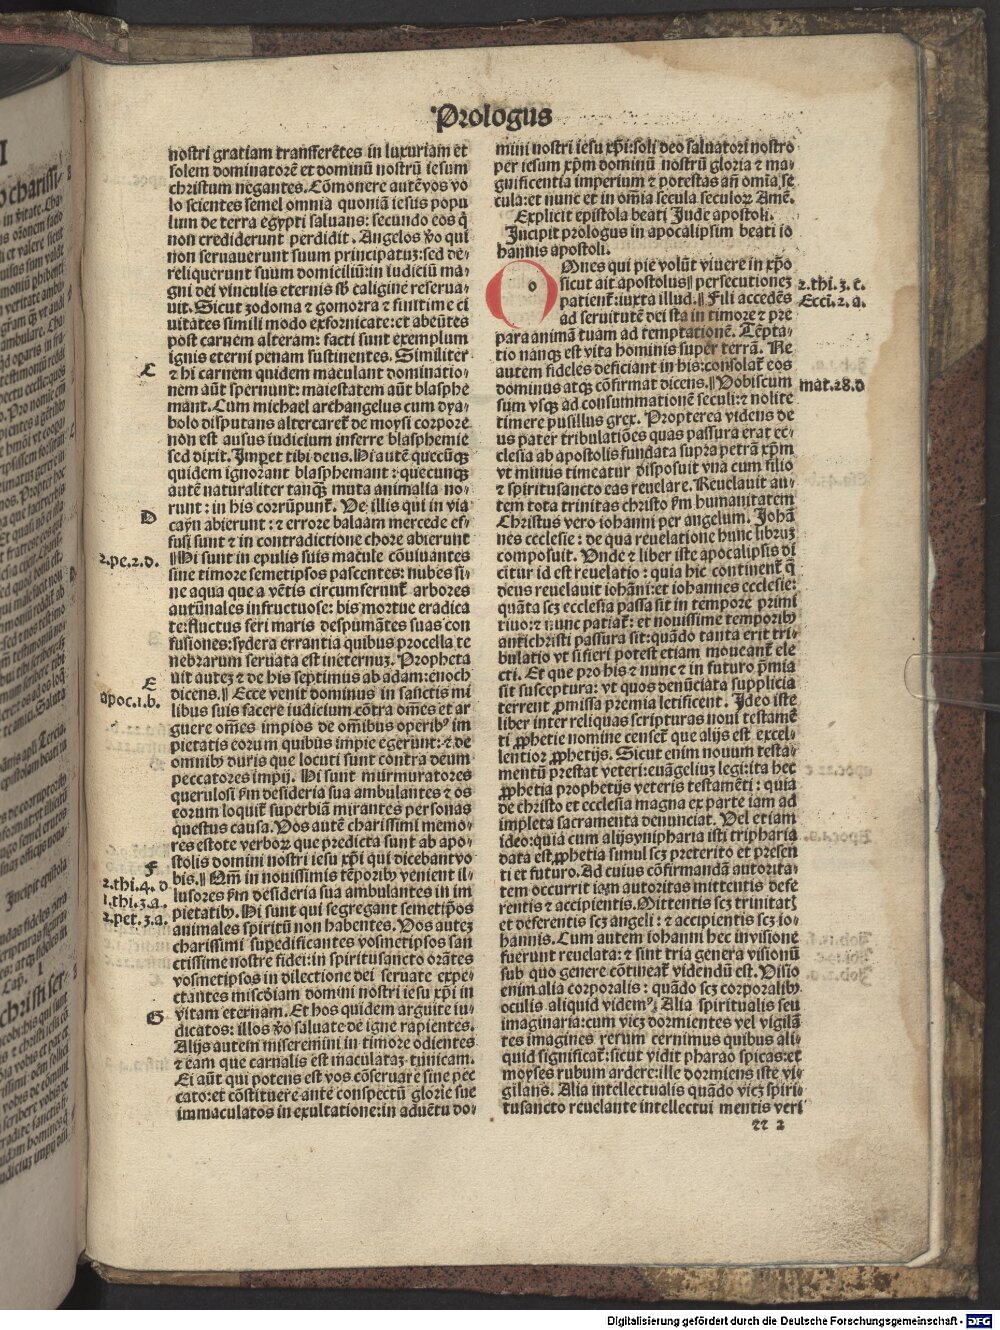 Prologus
nostri gratiam transferētes in luxuriam et
solem dominatorē et dominū nostrū iesum
christum negantes. Cōmonere autē vos vo
lo scientes semel omnia quoniā iesus popu
lum de terra egypti saluans: secundo eos q̄
non crediderunt perdidit. Angelos v̄o qui
non seruauerunt suum principatuz: sed de-
reliquerunt suum domiciliū: in iudiciū ma-
gni dei vinculis eternis sb̄ caligine reserua-
uit. Sicut zodoma ⁊ gomorra ⁊ finitime ci
uitates simili modo exfornicate: et abeūtes
post carnem alteram: facti sunt exemplum
ignis eterni penam sustinentes. Similiter
C
⁊ hi carnem quidem maculant dominatio-
nem aūt spernunt: maiestatem aūt blasphe
mant. Cum michael archangelus cum dya-
bolo disputans altercaret̄ de moysi corpore
non est ausus iudicium inferre blasphemie
sed dixit. Impet tibi deus. Hi autē quecūqꝫ
quidem ignorant blasphemant: quecunqꝫ
autē naturaliter tanqꝫ muta animalia no-
runt: in his corrūpunt̄. Ve illis qui in via
D
cayn abierunt: ⁊ errore balaam mercede ef-
fusi sunt ⁊ in contradictione chore abierunt
2.pe.2.d.
‖Hi sunt in epulis suis macule cōuiuantes
sine timore semetipsos pascentes: nubes si-
ne aqua que a vētis circumferunt̄ arbores
autūnales infructuose: bis mortue eradica
te: fluctus feri maris despumātes suas con
fusiones: sydera errantia quibus procella te
nebrarum seruata est ineternuz. Propheta
E
uit autez ⁊ de his septimus ab adam: enoch
apoc.1.b.
dicens.‖ Ecce venit dominus in sanctis mi
libus suis facere iudicium cōtra om̄es et ar
guere om̄es impios de om̄ibus operibꝰ im
pietatis eorum quibus impie egerunt: ⁊ de
omnibꝰ duris que locuti sunt contra deum
peccatores impij. Hi sunt murmuratores
querulosi ẜm desideria sua ambulantes ⁊ os
eorum loquit̄ superbiā mirantes personas
questus causa. Vos autē charissimi memo-
res estote verboꝝ que predicta sunt ab apo-
stolis domini nostri iesu xp̄i qui dicebant vo
F
bis.‖ Qm̄ in nouissimis tēporibꝰ venient il-
2.thi.4.d
lusores ẜm desideria sua ambulantes in im
1.thi.3.a.
pietatibꝰ. Hi sunt qui segregant semetip̄os
2.pet.3.a.
animales spiritū non habentes. Vos autez
charissimi supedificantes vosmetipsos san
ctissime nostre fidei: in spiritusancto orātes
vosmetipsos in dilectione dei seruate expe-
ctantes misc̄diam domini nostri iesu xp̄i in
G
vitam eternam. Et hos quidem arguite iu-
dicatos: illos v̄o saluate de igne rapientes.
Alijs autem miseremini in timore odientes
⁊ eam que carnalis est maculataz tunicam.
Ei aūt qui potens est vos cōseruare sine pec
cato: et cōstituere ante conspectū glorie sue
immaculatos in exultatione: in aduētu do-
mini nostri iesu xp̄i: soli deo saluatori nostro
per iesum xp̄m dominū nostrū gloria ⁊ ma-
gnificentia imperium ⁊ potestas añ omīa se
cula: et nunc et in om̄ia secula seculoꝝ Amē.
Explicit epistola beati Jude apostoli.
Incipit prologus in apocalipsim beati io
hannis apostoli.
Omnes qui pie volūt viuere in xp̄o
2.thi.3.c.
sicut ait apostolus‖ persecutionez
Ecci.2.a.
patient̄: iuxta illud.‖ Fili accedēs
ad seruitutē dei sta in timore ⁊ pre
para animā tuam ad temptationē. Tēpta-
tio nanqꝫ est vita hominis super terrā. Ne
autem fideles deficiant in his: consolat̄ eos
mat.28.d
dominus atqꝫ cōfirmat dicens.‖ Vobiscum
sum vsqꝫ ad consummationē seculi: ⁊ nolite
timere pusillus grex. Propterea videns de
us pater tribulatiōes quas passura erat ec-
clesia ab apostolis fundata supra petrā xp̄m
vt minus timeatur disposuit vna cum filio
⁊ spiritusancto eas reuelare. Reuelauit au-
tem tota trinitas christo ẜm humanitatem
Christus vero iohanni per angelum. Johā
nes ecclesie: de qua reuelatione hunc libruz
composuit. Unde ⁊ liber iste apocalipsis di
citur id est reuelatio: quia hic continent̄ q̄
deus reuelauit iohāni: et iohannes ecclesie:
quāta scꝫ ecclesia passa sit in tempore primi
tiuo: ⁊ nunc patiat̄: et nouissime temporibꝰ
antichristi passura sit: quādo tanta erit tri-
bulatio vt si fieri potest etiam moueant̄ ele
cti. Et que pro his ⁊ nunc ⁊ in futuro p̄mia
sit susceptura: vt quos denūciata supplicia
terrent ꝓmissa premia letificent. Ideo iste
liber inter reliquas scripturas noui testamē
ti ꝓphetie nomine censet̄ que alijs est excel-
lentior ꝓphetijs. Sicut enim nouum testa-
mentū prestat veteri: euāgeliuz legi: ita hec
ꝓphetia prophetijs veteris testamēti: quia
de christo et ecclesia magna ex parte iam ad
impleta sacramenta denunciat. Vel etiam
ideo: quia cum alijs ynipharia isti tripharia
data est ꝓphetia simul scꝫ preterito et presen
ti et futuro. Ad cuius cōfirmandā autorita-
tem occurrit iam autoritas mittentis defe
rentis ⁊ accipientis. Mittentis scꝫ trinitat̄
et deferentis scꝫ angeli: ⁊ accipientis scꝫ io-
hannis. Cum autem iohanni hec in visione
fuerunt reuelata: ⁊ sint tria genera visionū
sub quo genere cōtineat̄ videndū est. Visio
enim alia corporalis: quādo scꝫ corporalibꝰ
oculis aliquid videmꝰ. Alia spiritualis seu
imaginaria: cum vicꝫ dormientes vel vigilā
tes imagines rerum cernimus quibus ali-
quid significat̄: sicut vidit pharao spicas: et
moyses rubum ardere: ille dormiens iste vi-
gilans. Alia intellectualis quādo vicꝫ spiri-
tusancto reuelante intellectui mentis veri
22 2
Digitalisierung gefördert durch die Deutsche Forschungsgemeinschaft - DFG